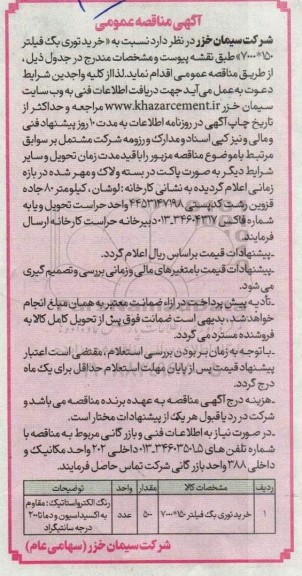 آگهی مناقصه عمومی
شرکت سیمان خزر در نظر دارد نسبت به «خرید توری بگ فیلتر
۱۵۰*۷۰۰۰» طبق نقشه پیوست و مشخصات مندرج در جدول ذیل ،
از طریق مناقصه عمومی اقدام نماید. لذا از کلیه واجدین شرایط
دعوت به عمل می آید جهت دریافت اطلاعات فنی به وب سایت
سیمان خزر www.khazarcement.ir مراجعه و حداکثر از
تاریخ چاپ آگهی در روزنامه اطلاعات به مدت ۱۰ روز پیشنهاد فنی
و مالی و نیز کپی اسناد و مدارک و رزومه شرکت مشتمل بر سوابق
مرتبط با موضوع مناقصه مزبور را با قید مدت زمان تحویل و سایر
شرایط دیگر به صورت پاکت در بسته و لاک و مهر شده در بازه
زمانی اعلام گردیده به نشانی کارخانه : لوشان ، کیلومتر ۸۰ جاده
قزوین رشت کدپستی ۴۴۵۳۱۴۷۱۹۸ واحد حراست تحویل و یا به
شماره فاکس ۳۴۶۰۴۳۱۷-۰۱۳ دبیرخانه حراست کارخانه ارسال
فرمایند.
ـ پیشنهادات قیمت بر اساس ریال اعلام گردد.
ـ پیشنهادات قیمت با متغیرهای مالی و زمانی بررسی و تصمیم گیری
می شود.
ـ تأدیه پیش پرداخت در ازاء ضمانت معتبر به همان مبلغ انجام
خواهد شد ، بدیهی است ضمانت فوق پس از تحویل کامل کالا به
فروشنده مسترد می گردد.
ـ با توجه به زمان بر بودن بررسی استعلام ، مقتضی است اعتبار
پیشنهاد قیمت پس از پایان مهلت استعلام حداقل برای یک ماه
درج گردد.
ـ هزینه درج آگهی مناقصه به عهده برنده مناقصه می باشد و
شرکت در رد یا قبول هر یک از پیشنهادات مختار است.
ـ در صورت نیاز به اطلاعات فنی و بازرگانی مربوط به مناقصه با
شماره تلفن های ۵-۳۴۶۰۳۵۰۱-۰۱۳ داخلی ۲۰۲ واحد مکانیک و
داخلی ۳۸۸ واحد بازرگانی شرکت تماس حاصل فرمایند.
ردیف مشخصات کالا مقدار واحد توضیحات
۱ خرید توری بگ فیلتر ۱۵۰*۷۰۰۰ ۵۰۰ عدد رنگ الکترواستاتیک : مقاوم
به اکسیداسیون و دما تا ۲۰۰
درجه سانتیگراد
شرکت سیمان خزر (سهامی عام)